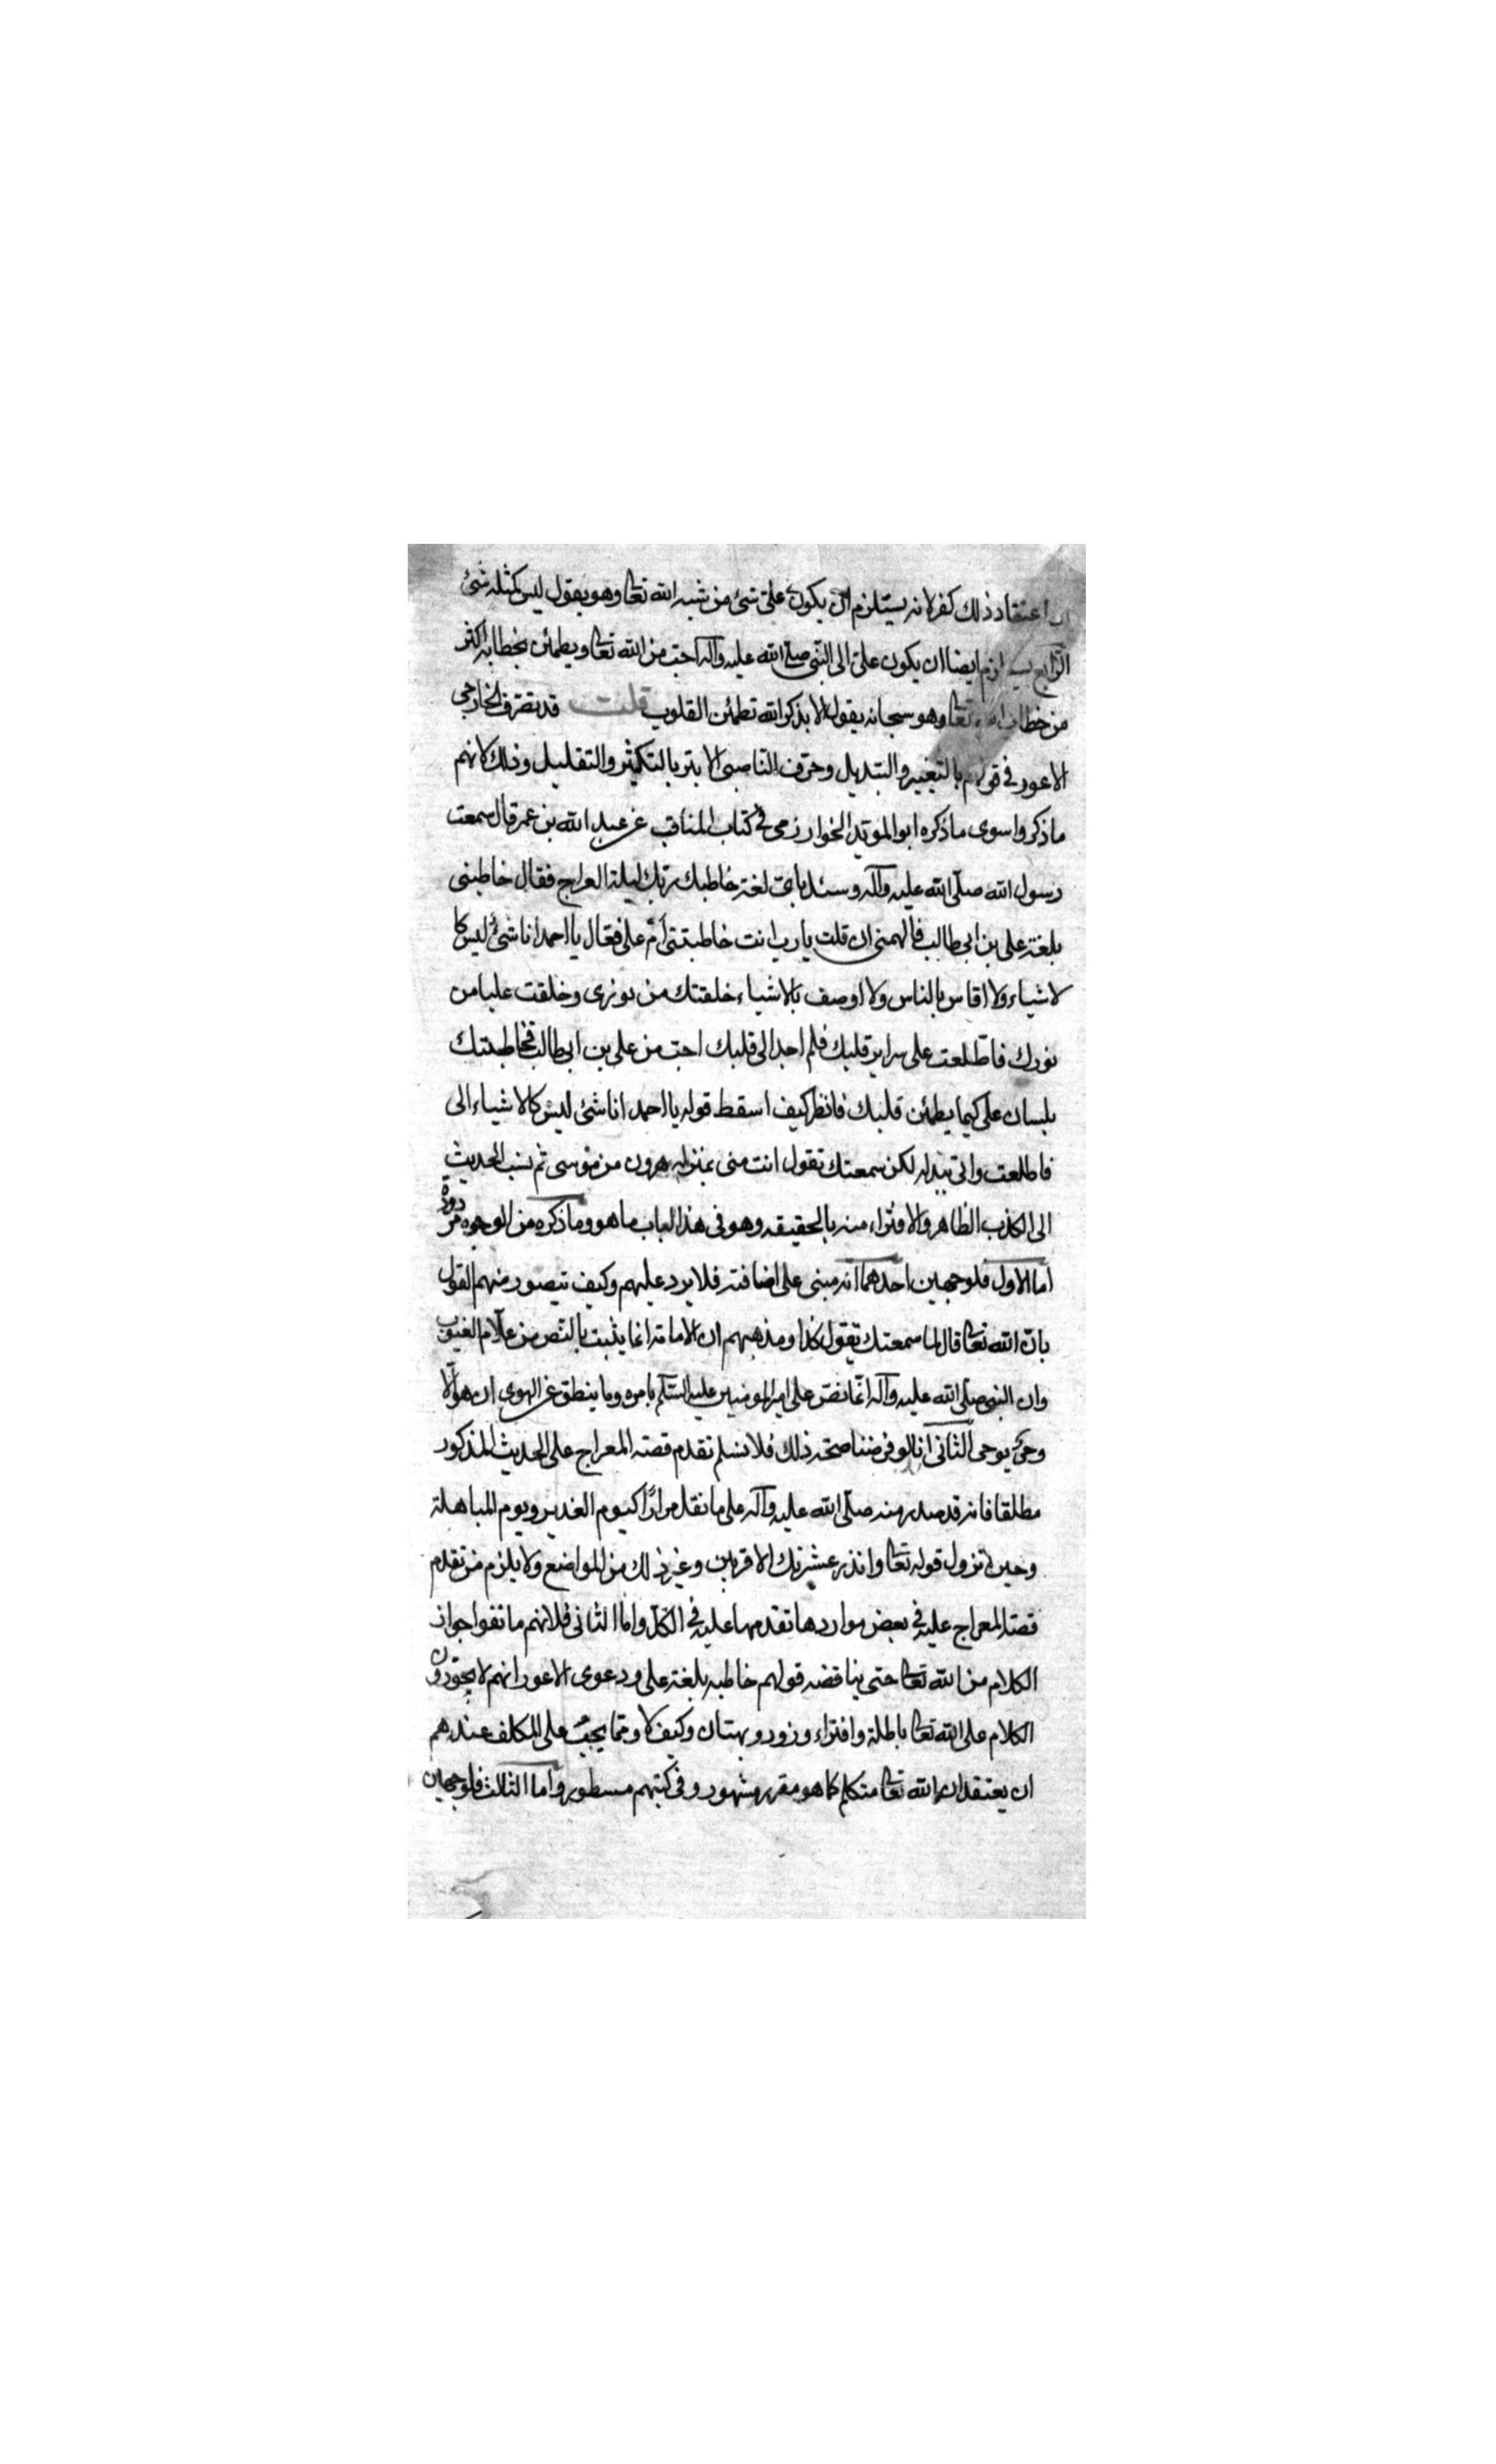 ان اعتقاد ذلك كفر لانه يستلزم ان يكون على شئ من شبه الله تعا وهو يقول ليس كمثله شئ
الرابع يستلزم ايضا ان يكون على الى النبى صلى الله عليه وآله احب من الله تعا ويطمئن بخطابه اكثر
من خطاب الله تعا وهو سبحانه يقول الا بذكر الله تطمئن القلوب قلت قد تصرف الخارجى
الاعور فى قولهم بالتغيير والتبديل وحرف الناصبى الابتر بالتكثير والتقليل وذلك لانهم
ما ذكروا سوى ما ذكره ابو المويد الخوارزمى فى كتاب المناقب عن عبد الله بن عمر قال سمعت
رسول الله صلى الله عليه وآله وسئل باى لغة خاطبك ربك ليلة المعراج فقال خاطبنى
بلغة على بن ابى طالب فالهمنى ان قلت يا رب انت خاطبتنى أم على فقال يا احمد انا شئ ليس كا
لاشياء ولا اقاس بالناس ولا اوصف بالاشياء خلقتك من نورى وخلقت عليا من
نورك فاطلعت على سراير قلبك فلم اجد الى قلبك احب من على بن ابى طالب فخاطبتك
بلسان على كيما يطمئن قلبك فانظر كيف اسقط قوله يا احمد انا شئ ليس كالاشياء الى
فاطلعت واتى بدله لكن سمعتك تقول انت منى بمنزله هرون من موسى ثم نسب الحديث
الى الكذب الظاهر والافتراء منه بالحقيقه وهو فى هذا الباب ما هو وما ذكره من الوجوه مردودة
اما الاول فلوجهين احدهما انه مبنى على اضافته فلا يرد عليهم وكيف يتصور منهم القول
بان الله تعا قال لما سمعتك تقول كذا ومذهبهم ان الامامة انما يثبت بالنص من علام الغيوب
وان النبى صلى الله عليه وآله انما نص على امير المومنين عليه السلم بامره وما ينطق عن الهوى ان هو الا
وحى يوحى الثانى انا لو فرضنا صحة ذلك فلا نسلم تقدم قصة المعراج على الحديث المذكور
مطلقا فانه قد صدر منه صلى الله عليه وآله على ما نقل مرارًا كيوم الغدير ويوم المباهلة
وحين نزول قوله تعا وانذر عشيرتك الاقربين وغير ذلك من المواضع ولا يلزم من تقدم
قصة المعراج عليه فى بعض مواردها تقدمها عليه فى الكل واما الثانى فلانهم ما نفوا جواز
الكلام من الله تعا حتى يناقضه قولهم خاطبه بلغة على ودعوى الاعور انهم لا يجوزون
الكلام على الله تعا باطلة وافتراء وزور وبهتان وكيف لا ومما يجب على المكلف عندهم
ان يعتقد ان الله تعا متكلم كما هو مقرر مشهور وفى كتبهم مسطور واما الثالث فلوجهين